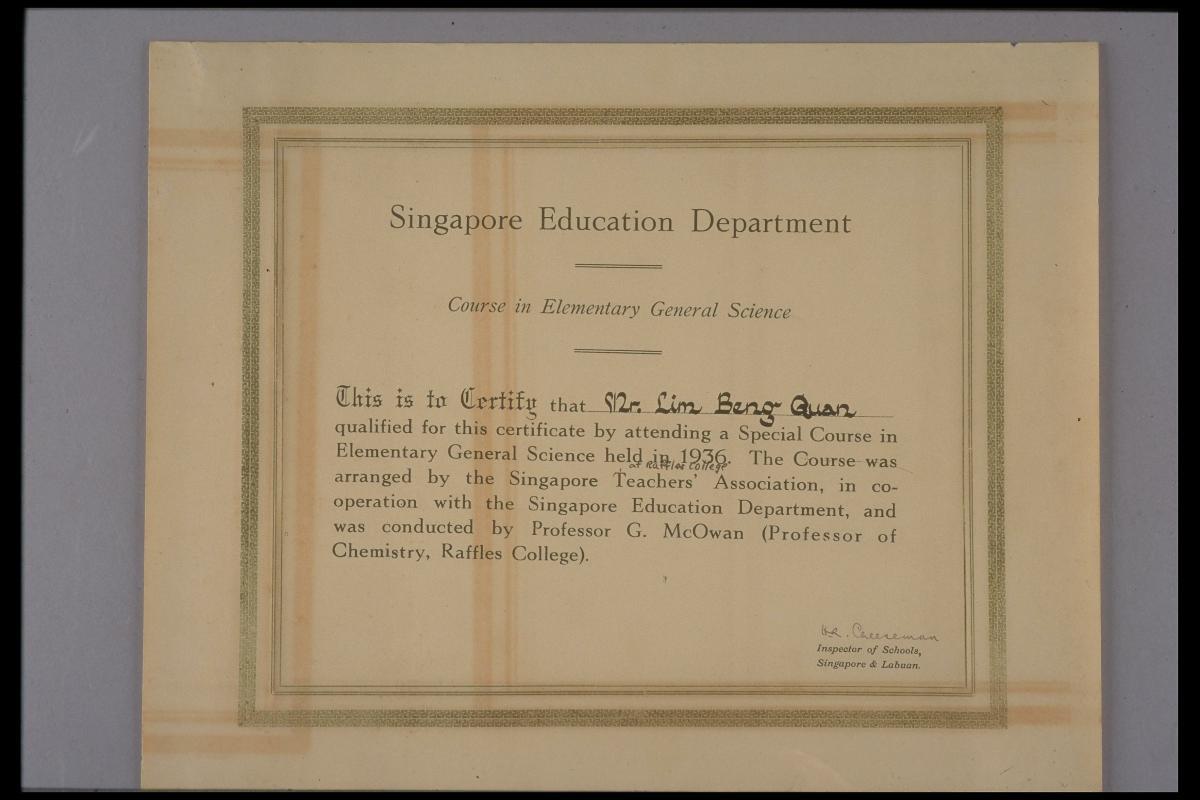 Singapore Education Department
Course in Elementary General Science
This is to Certify that Mr. Lim Beng Quan
qualified for this certificate by attending a Special Course in
Elementary General Science held in 1936. The Course was
at Raffles College
arranged by the Singapore Teachers' Association, in co-
operation with the Singapore Education Department, and
was conducted by Professor G. McOwan (Professor of
Chemistry, Raffles College).
H.R. Cheeseman
Inspector of Schools,
Singapore & Labuan.